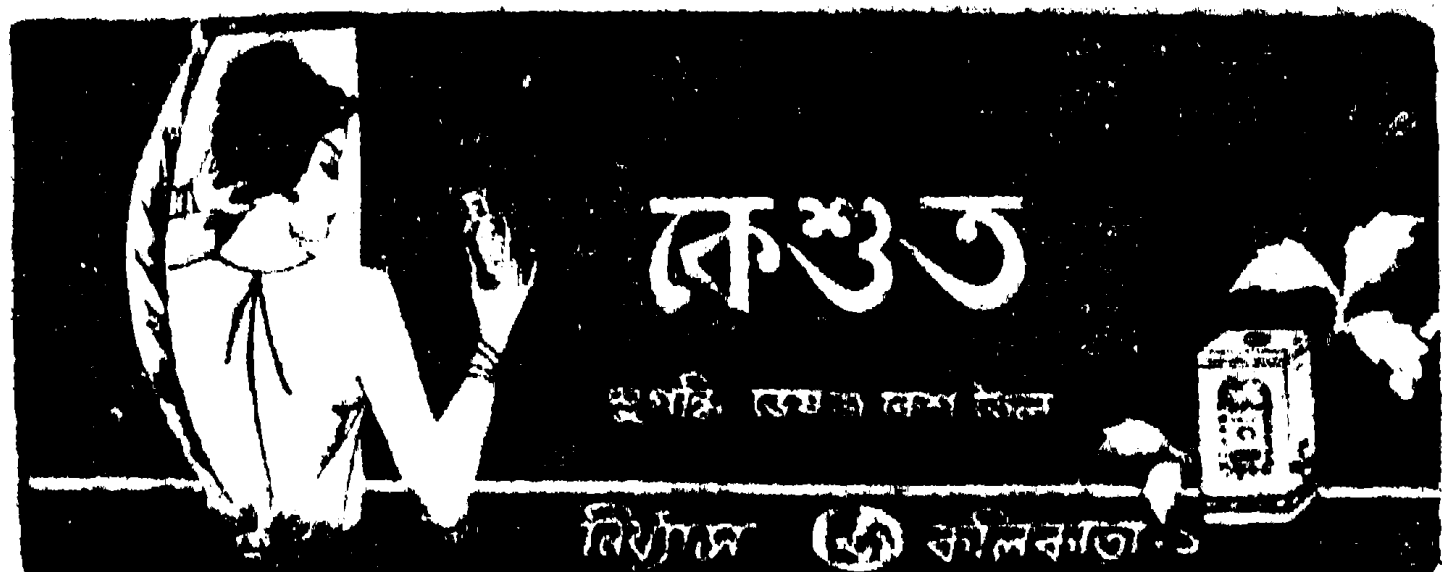 কেশুত
সুগন্ধি ভেষজ কেশ তৈল
নির্য্যাস কলিকাতা-১